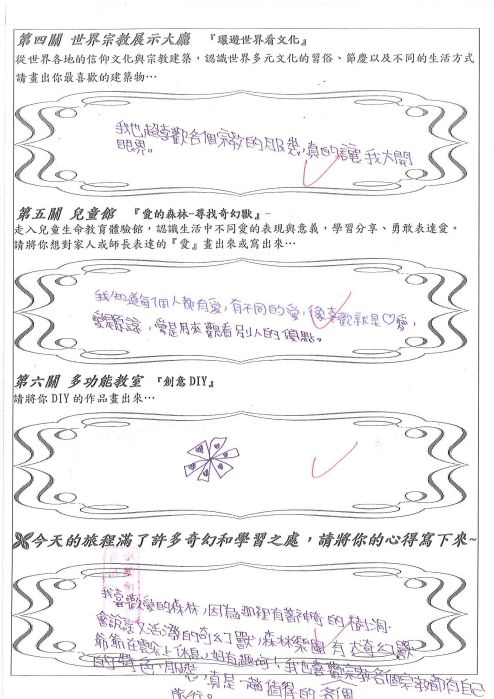 第四關 世界宗教展示大廳 『環遊世界看文化』
從世界各地的信仰文化與宗教建築，認識世界多元文化的習俗、節慶以及不同的生活方式
請畫出你最喜歡的建築物…
我也超喜歡各個宗教的服裝，真的讓我大開
眼界。
第五關 兒童館 『愛的森林-尋找奇幻獸』-
走入兒童生命教育體驗館，認識生活中不同愛的表現與意義，學習分享、勇敢表達愛。
請將你想對家人或師長表達的『愛』畫出來或寫出來…
我知道每個人都有愛，有不同的愛，像喜歡就是♡愛，
愛是用來觀看別人的優點。
第六關 多功能教室 『創意DIY』
請將你DIY的作品畫出來…
✂今天的旅程滿了許多奇幻和學習之處，請將你的心得寫下來~
我喜歡愛的森林，因為那裡有著神奇的樹洞，
會說話又活潑的奇幻獸，森林樂園有大奇幻獸
爺爺在雲上休息，好有趣喲！我也喜歡宗教各個宗教都有自己
的特色，服裝，真是一趟值得的奇幻
旅行。